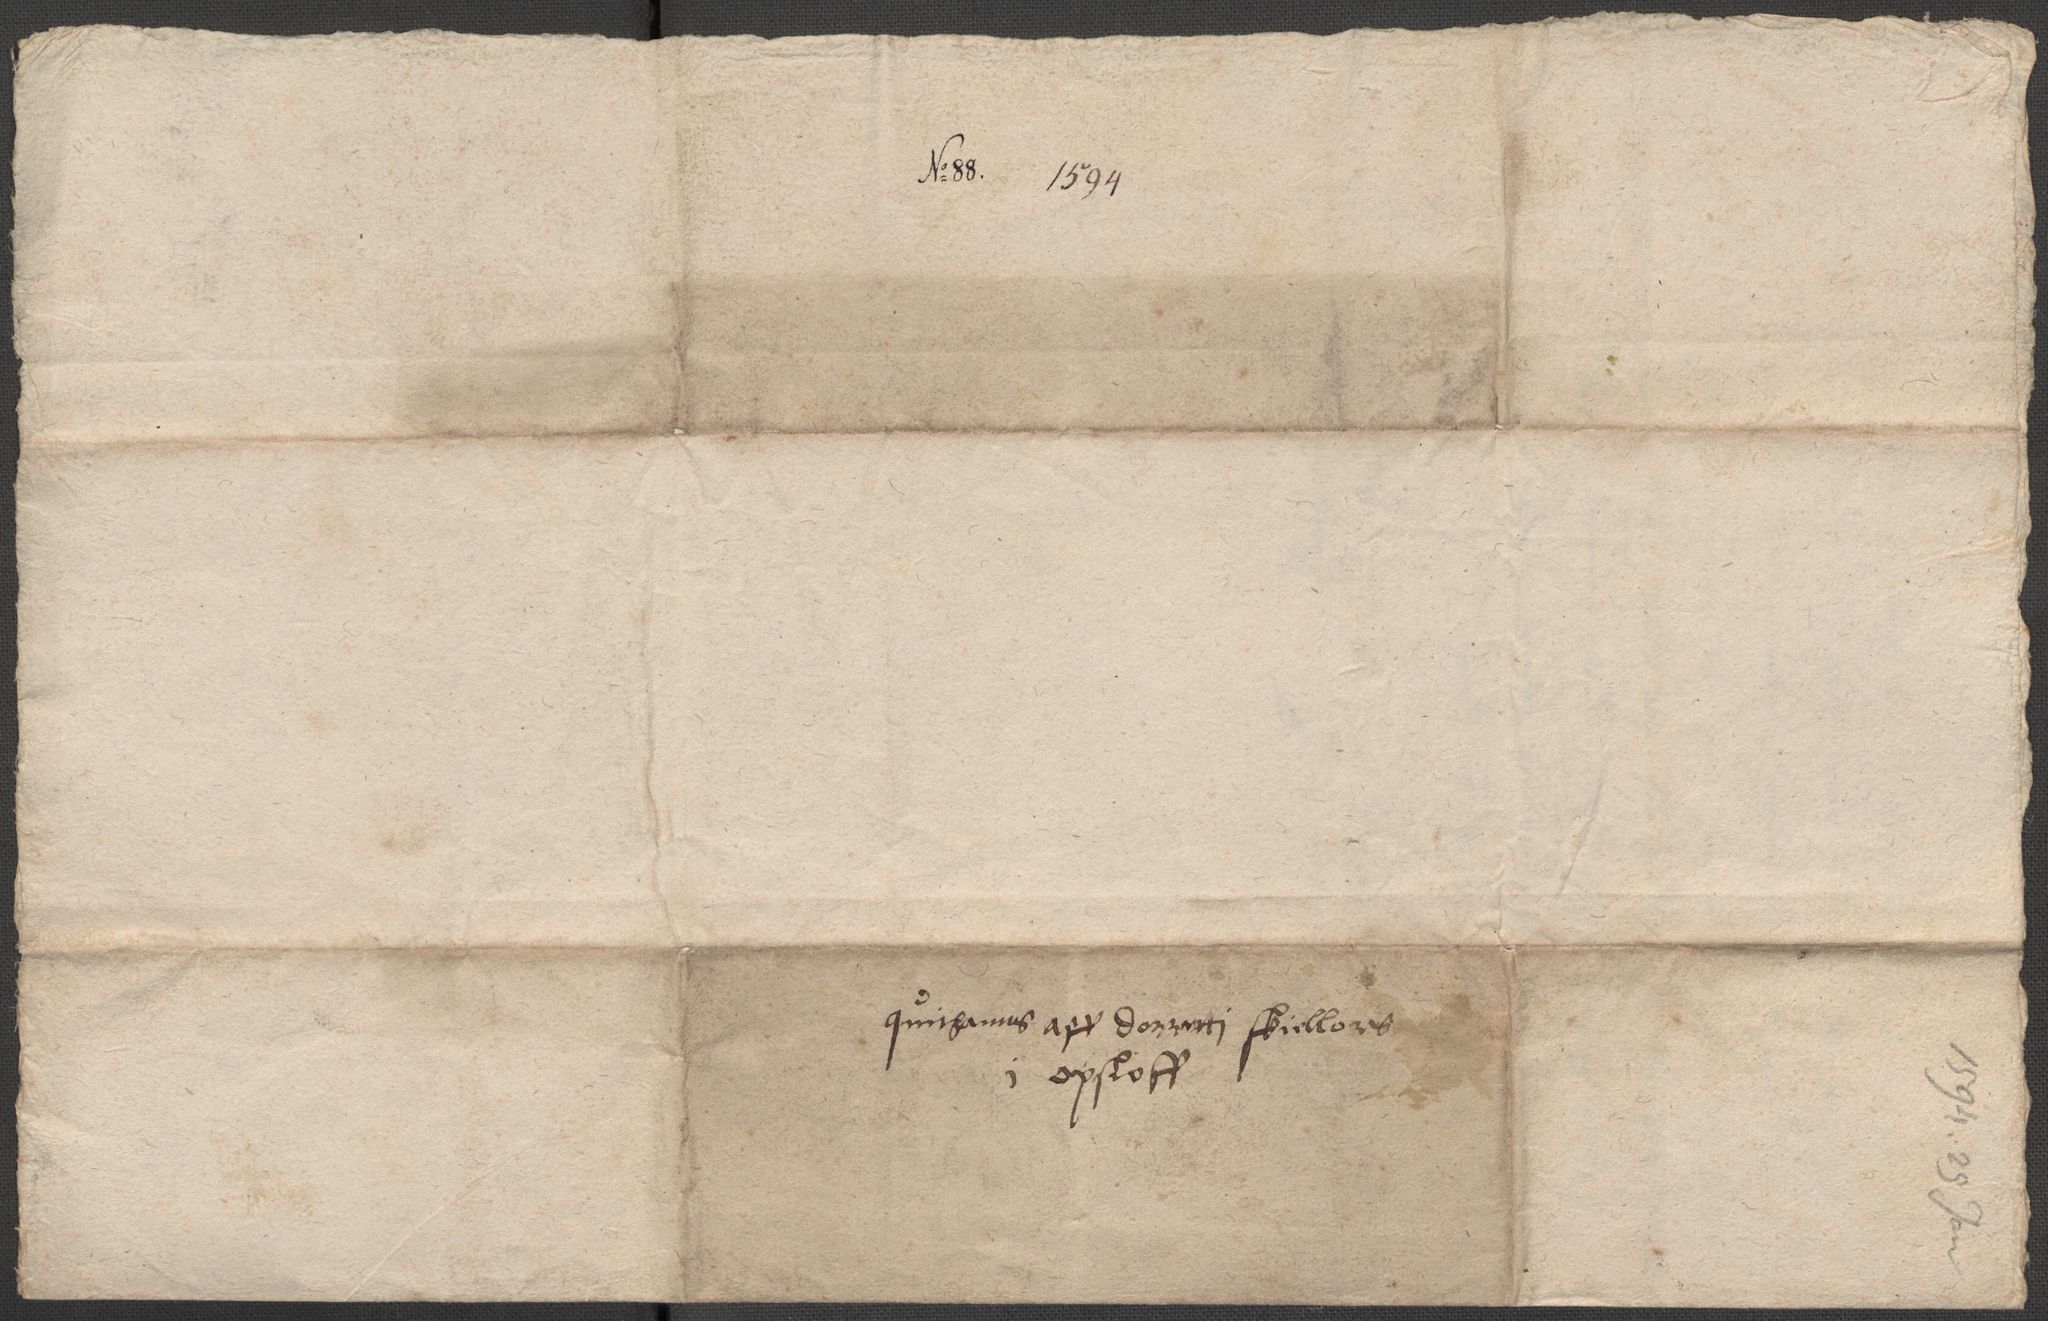 No 88. 1594
quitzanns aff dorretti skiellors
i opsloff
1594. 29 Jan